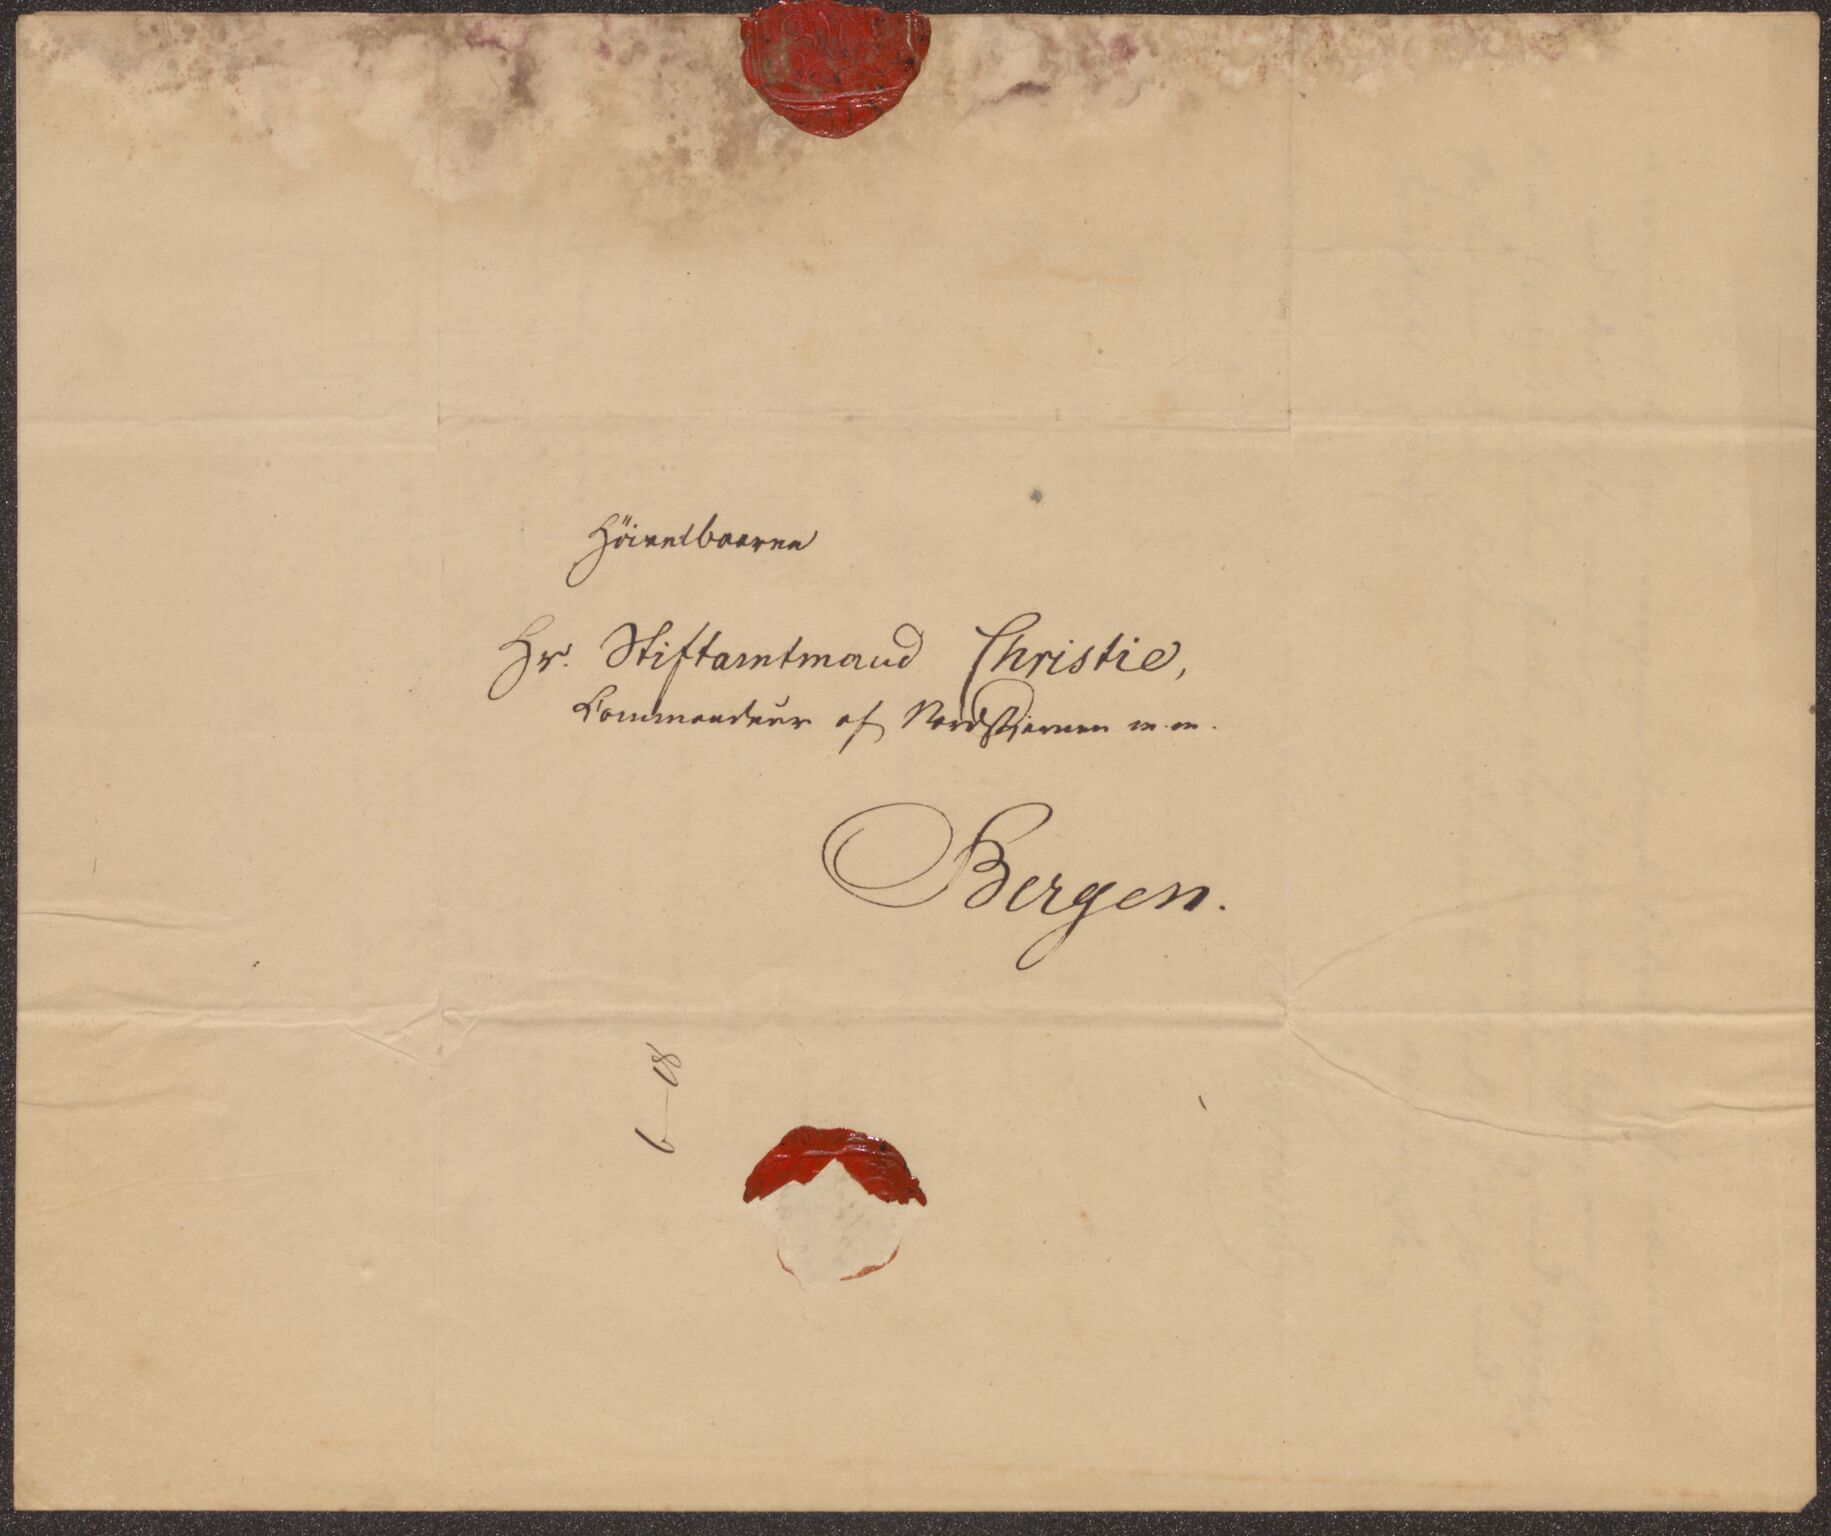 Höivelbaarne
Hr. Stiftamtmand Christie,
Commandeur af Nordstjernen m.m.
Bergen.
6—18